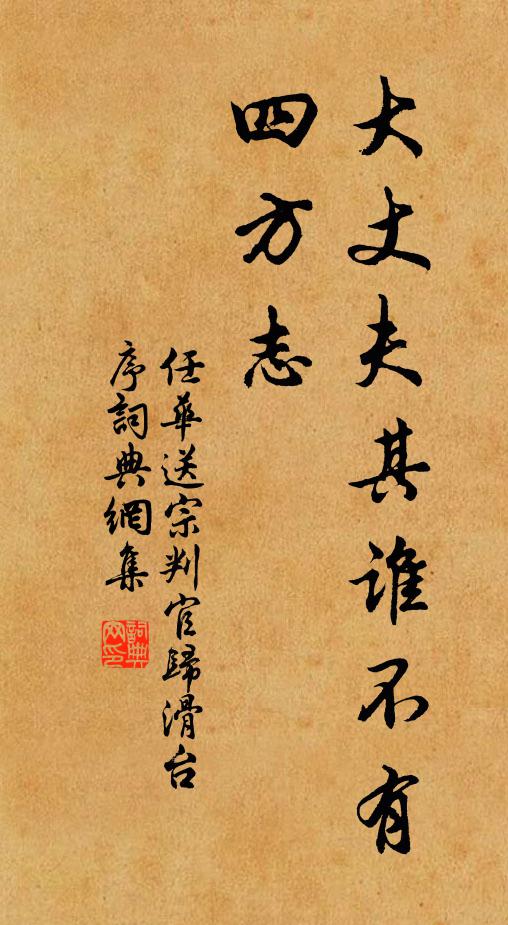 大丈夫其誰不有
四方志
任華送宗判官歸滑台
序詞典網集
詞典
網印